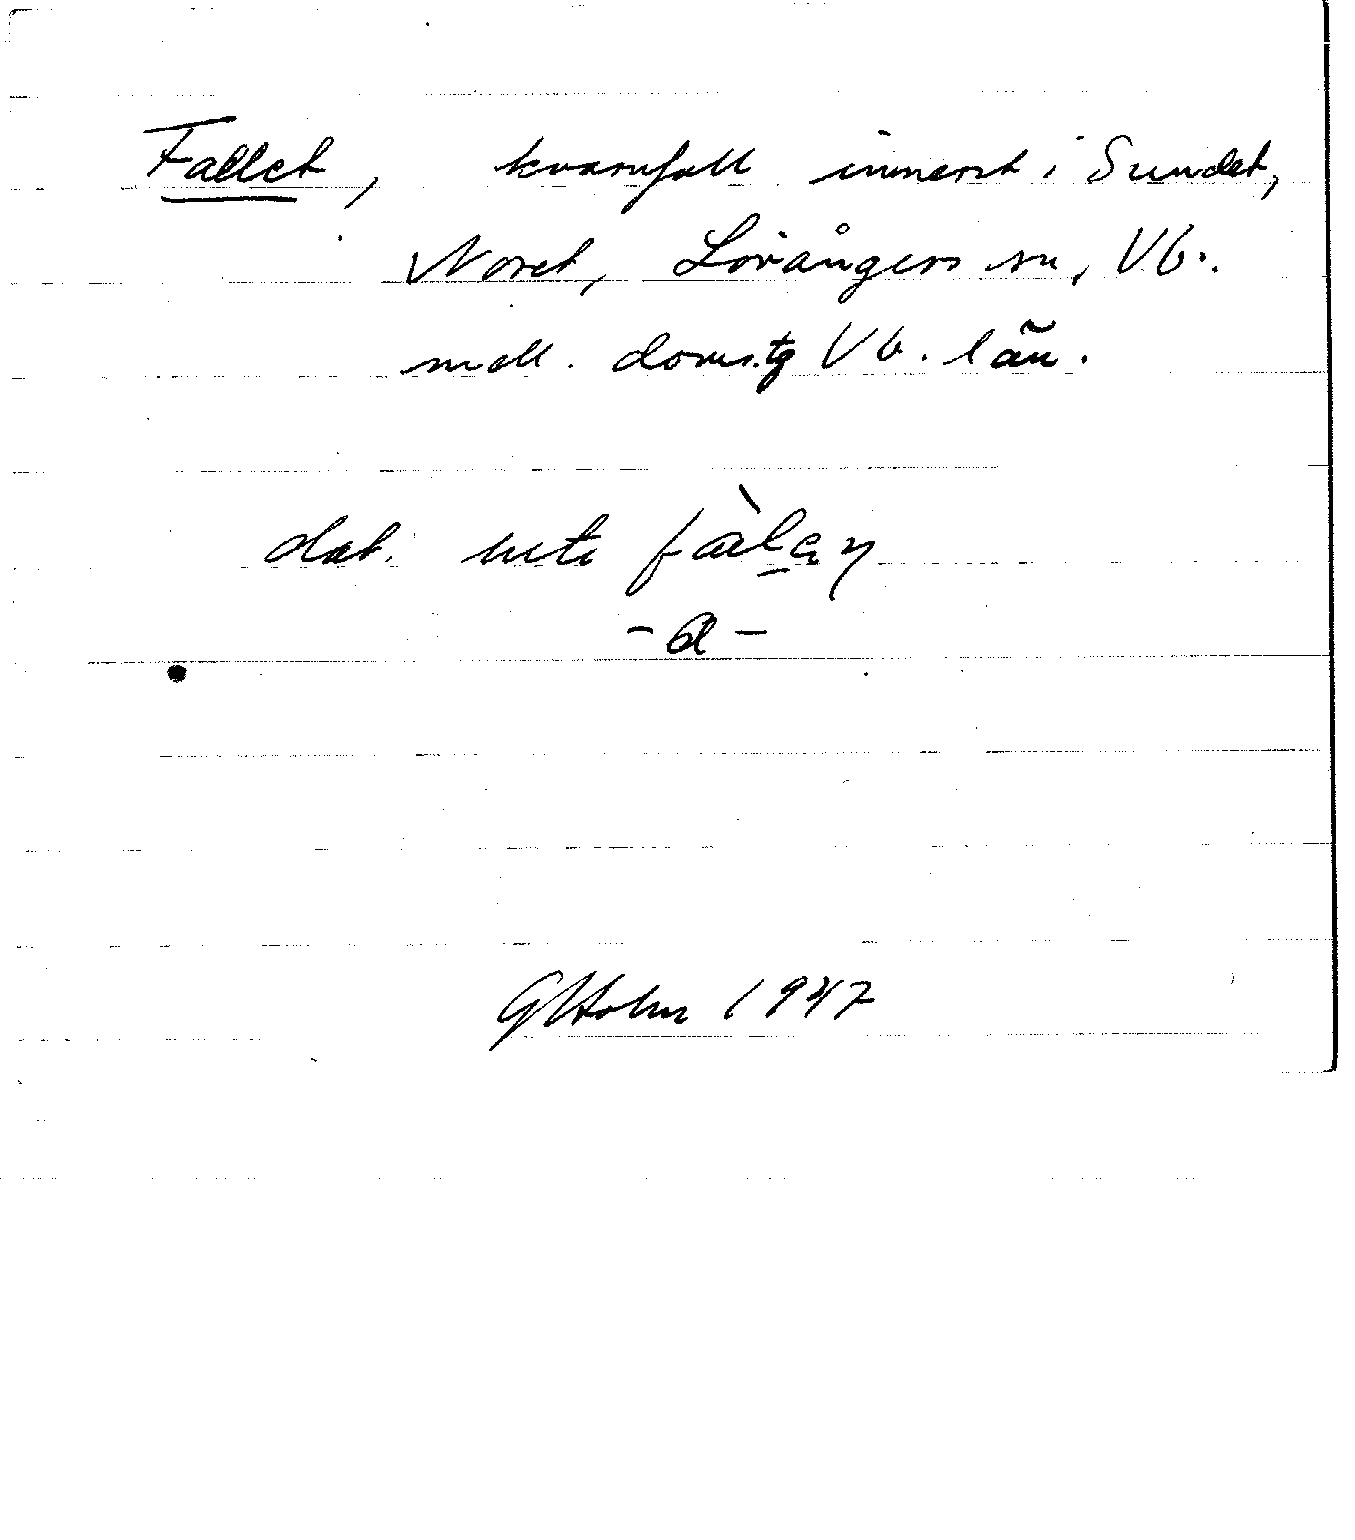 Fallet, kvarnfall innerst i Sundet,
Noret, Lövångers sn, Vb.
mell. doms.tg Vb. län.
dat. ute
- a -
GHolm 1947